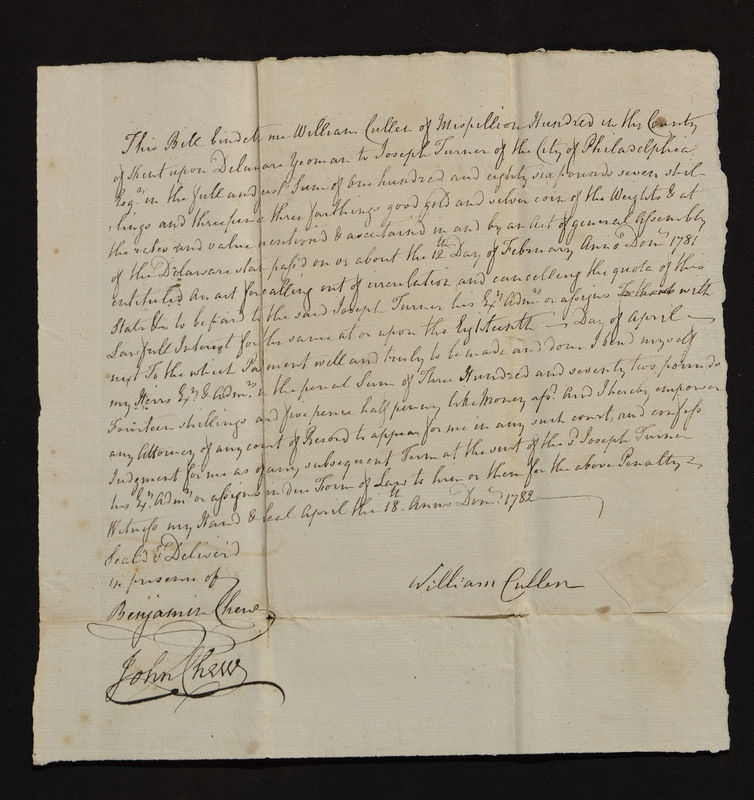 This Bill bindeth me William Cullen of Mispillion Hundred in the County
of Kent upon Delaware Yeoman to Joseph Turner of the City of Philadelphia
Esqr. in the full and just Sum of one hundred and eighty six pounds seven shil-
lings and threepence three farthings good gold and silver coin of the Weights & at
the rates and value mentioned & ascertained in and by an Act of general Assembly
of the Delaware state pass'd on or about the 12th Day of February Anno Domi. 1781
entituled An act for calling out of circulation and cancelling the quota of this
State &c to be paid to the said Joseph Turner his Exrs. Admrs. or assigns with
Lawfull Interest for the same at or upon the Eighteenth Day of April
next To the which Payment well and truly to be made and done I bend myself
my Heirs Exrs. & Admrs. in the penal Sum of Three Hundred and seventy two pounds
Fourteen shillings and sevenpence half penny like Money afsd. And I hereby empower
any Attorney of any court of Record to appear for me in any such court, and confess
Judgment for me as of any subsequent Term at the suit of the sd. Joseph Turner
his Exrs. Admrs. or assigns in due Form of Law to him or them for the above Penalty
Witness my Hand & Seal April the 18th. Anno Domi. 1782
Seal'd & Deliver'd
in presence of
William Cullen
Benjamin Chew
John Chew